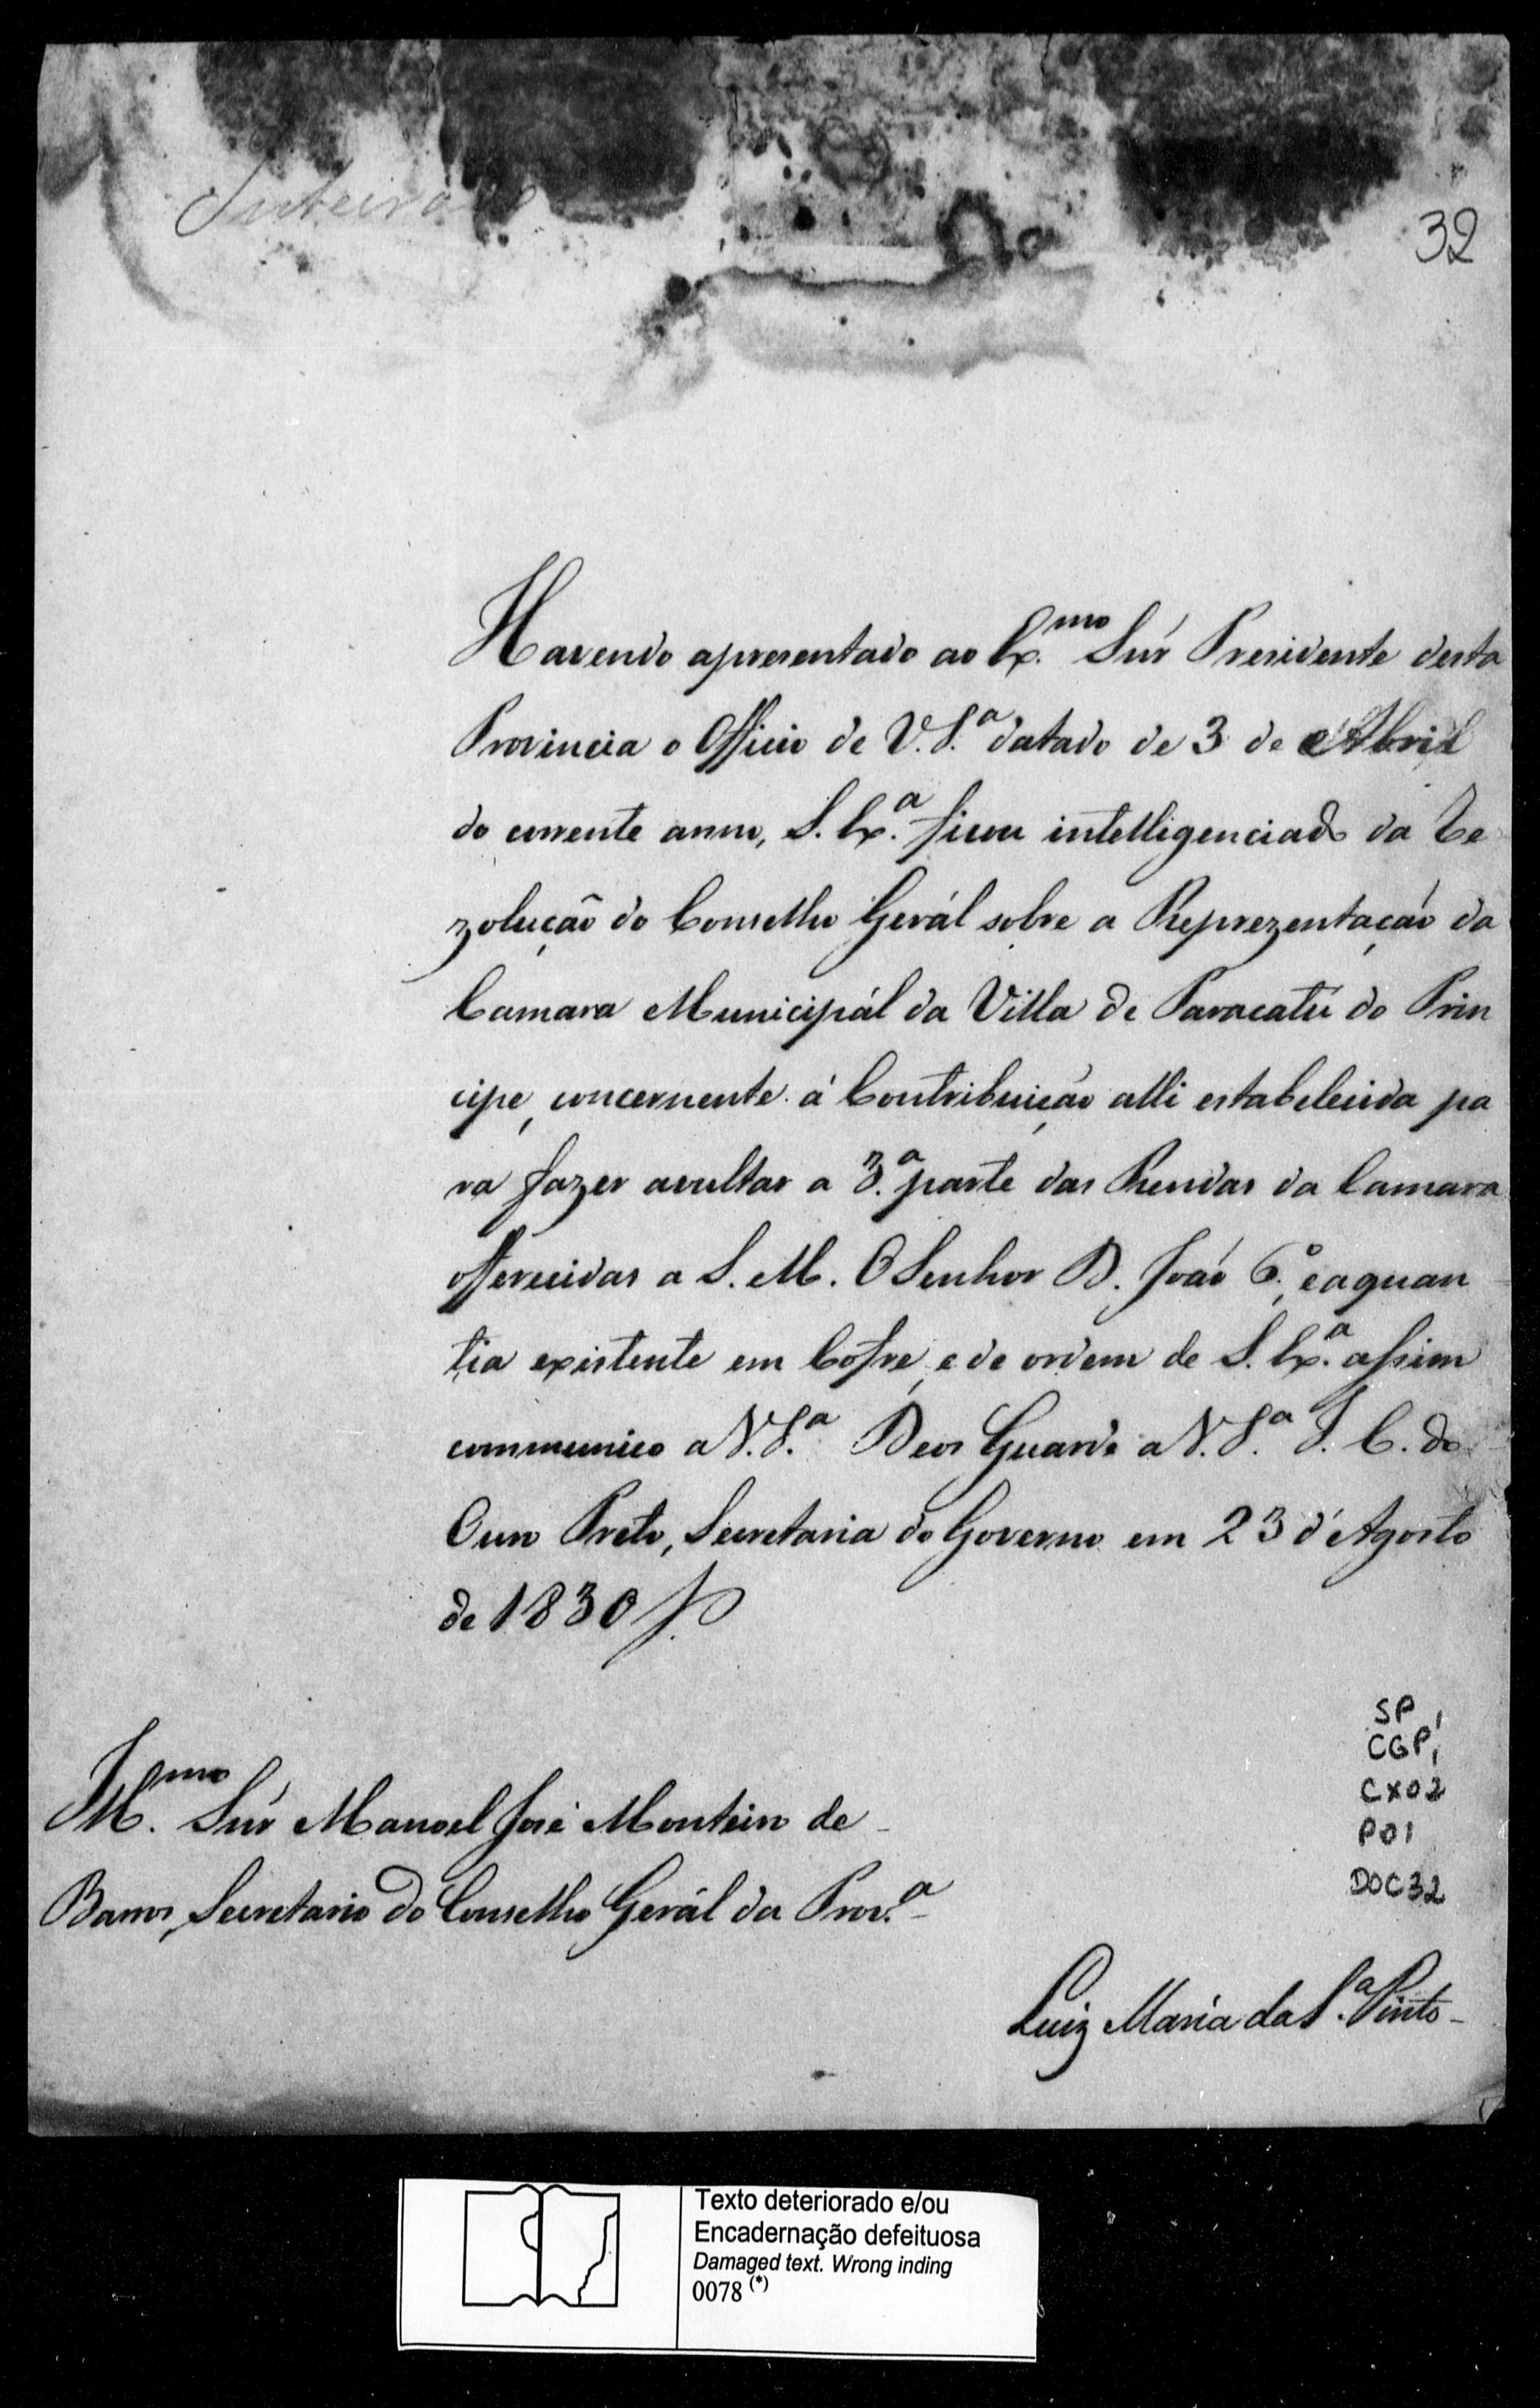 Inteirado
32
Havendo apresentado ao Ex.mo Snr̃ Presidente desta
Provincia o Officio de V. S.ª datado de 3 de Abril
do corrente anno, S. Ex.ª ficou intelligenciado da Re
zolução do Conselho Gerál sobre a Reprezentação da
Camara Municipál da Villa de Paracatú do Prin
cipe, concernente á Contribuição alli estabelecida pa
ra fazer avultar a 3.ª parte das Rendas da Camara
offerecidas a S. M. O Senhor D. João 6.º, e a quan
tia existente em Cofre, e de ordem de S. Ex.ª assim
communico a V. S.ª Deos Guarde a V. S.ª I. C. do
Ouro Preto, Secretaria do Governo em 23 d'Agosto
de 1830
SP,
CGP,
CX02
P01
DOC32
Ill.mo Snr̃ Manoel José Monteiro de
Barros, Secretario do Conselho Gerál da Prov.ª
Luiz Maria da S.ª Pinto
Texto deteriorado e/ou
Encadernação defeituosa
Damaged text. Wrong inding
0078 (*)